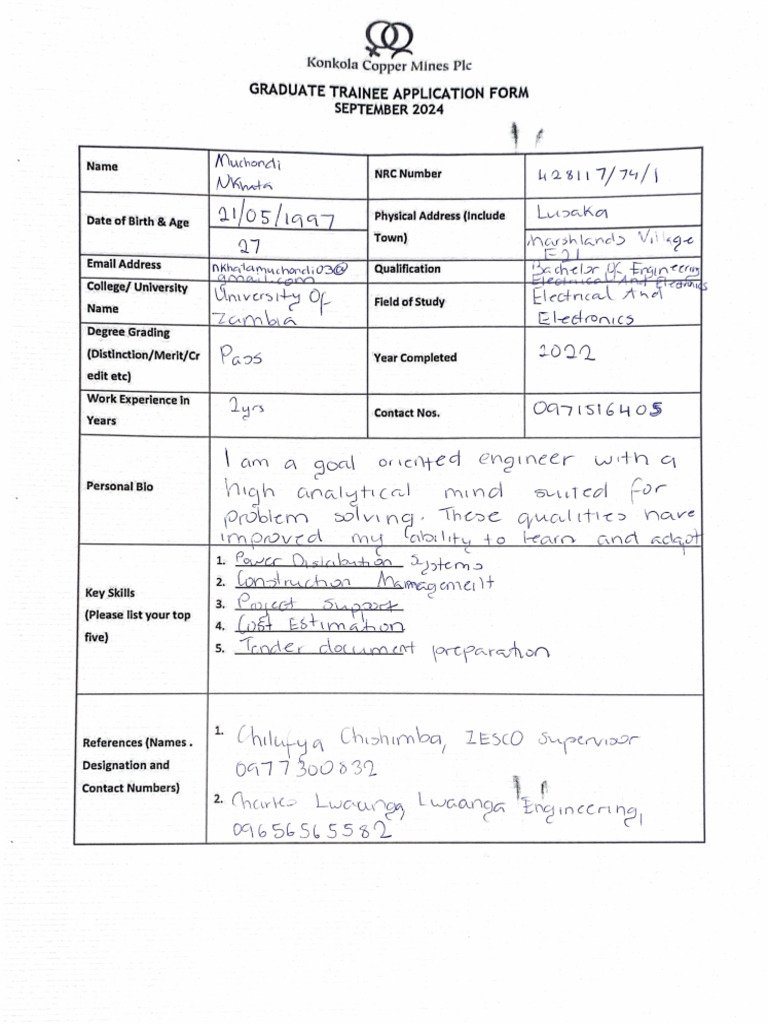 Konkola Copper Mines Plc
GRADUATE TRAINEE APPLICATION FORM
SEPTEMBER 2024
Name
Muchondi
Nkhata
NRC Number
428117/74/1
Date of Birth & Age
21/05/1997
27
Physical Address (Include
Town)
Lusaka
Marshlands Village
E21
Email Address
nkhatamuchondi03@
gmail.com
Qualification
Bachelor Of Engineering
Electrical And Electronics
College/ University
Name
University Of
Zambia
Field of Study
Electrical And
Electronics
Degree Grading
(Distinction/Merit/Cr
edit etc)
Pass
Year Completed
2022
Work Experience in
Years
2yrs
Contact Nos.
0971516405
Personal Bio
I am a goal oriented engineer with a
high analytical mind suited for
problem solving. These qualities have
improved my ability to learn and adapt
Key Skills
(Please list your top
five)
1. Power Distribution Systems
2. Construction Management
3. Project Support
4. Cost Estimation
5. Tender document preparation
References (Names .
Designation and
Contact Numbers)
1. Chilufya Chishimba, ZESCO Supervisor
0977300832
2. Charles Lwaanga, Lwaanga Engineering,
09656565582